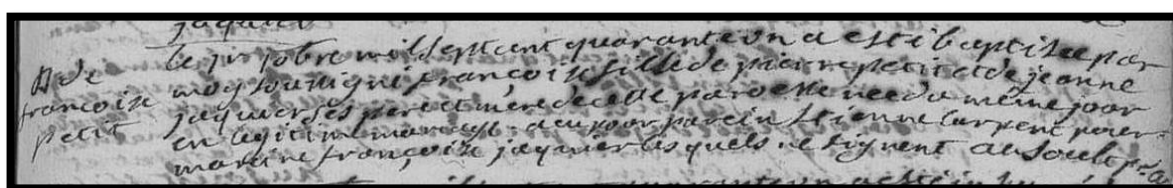 B de
francoise
petit
le jer jobre mil sept cent quarante un a esté baptisee par
moy soussigné francoise fille de pierre petit et de jeanne
jaquier ses pere et mere de cette paroesse nee du même jour
en legitime mariage a eu pour parein Etienne larpent pour
mareine françoise jaquier lesquels ne signent